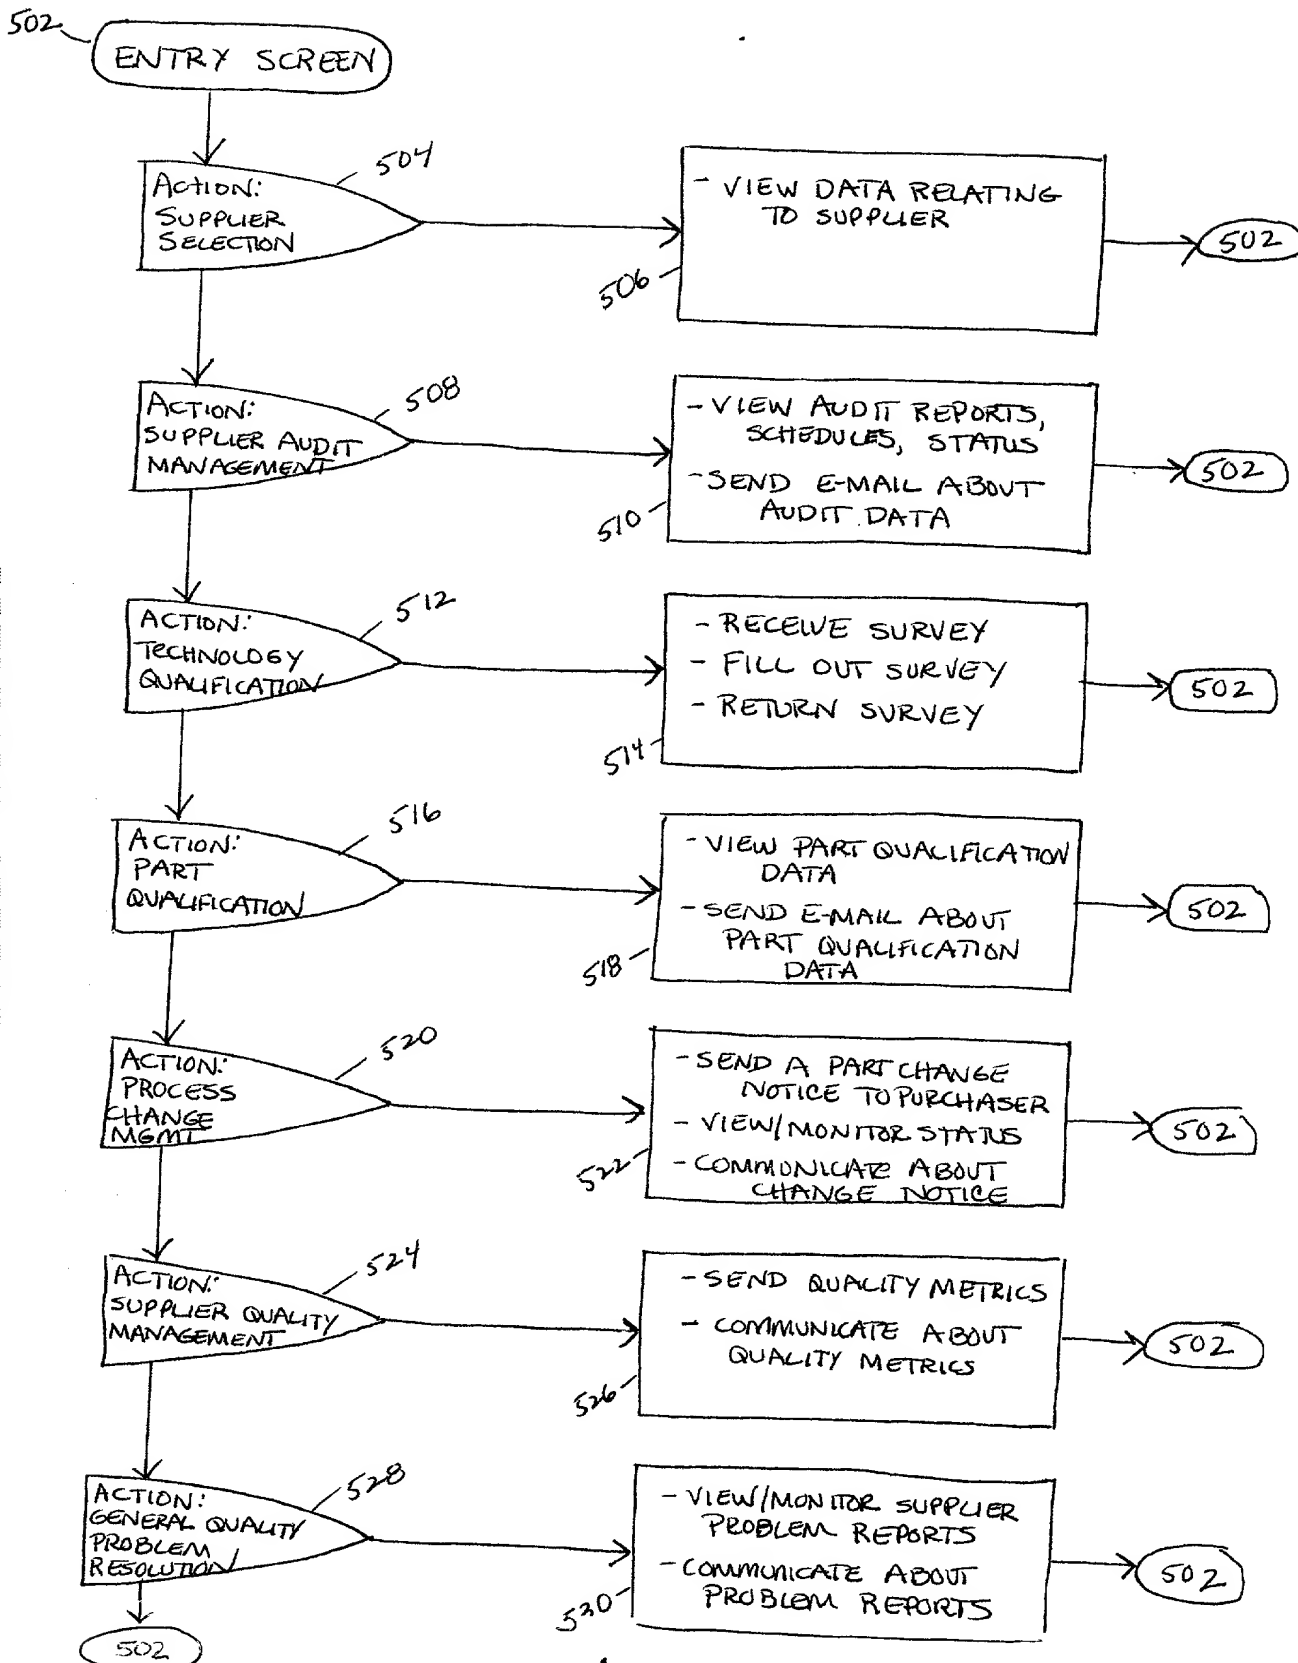 502
ENTRY SCREEN
504
ACTION:
SUPPLIER
SELECTION
- VIEW DATA RELATING
TO SUPPLIER
506
502
508
ACTION:
SUPPLIER AUDIT
MANAGEMENT
- VIEW AUDIT REPORTS,
SCHEDULES, STATUS
- SEND E-MAIL ABOUT
AUDIT DATA
510
502
512
ACTION:
TECHNOLOGY
QUALIFICATION
- RECEIVE SURVEY
- FILL OUT SURVEY
- RETURN SURVEY
514
502
516
ACTION:
PART
QUALIFICATION
- VIEW PART QUALIFICATION
DATA
- SEND E-MAIL ABOUT
PART QUALIFICATION
DATA
518
502
520
ACTION:
PROCESS
CHANGE
MGMT
- SEND A PART CHANGE
NOTICE TO PURCHASER
- VIEW/MONITOR STATUS
- COMMUNICATE ABOUT
CHANGE NOTICE
522
502
524
ACTION:
SUPPLIER QUALITY
MANAGEMENT
- SEND QUALITY METRICS
- COMMUNICATE ABOUT
QUALITY METRICS
526
502
528
ACTION:
GENERAL QUALITY
PROBLEM
RESOLUTION
- VIEW/MONITOR SUPPLIER
PROBLEM REPORTS
- COMMUNICATE ABOUT
PROBLEM REPORTS
530
502
502